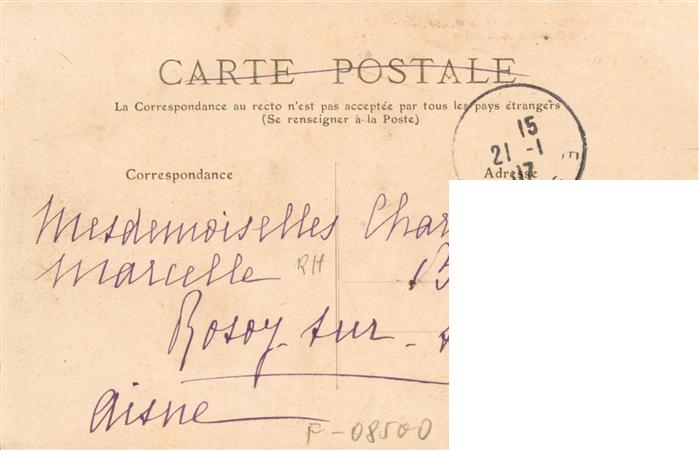 CARTE POSTALE
La Correspondance au recto n'est pas acceptée par tous les pays étrangers
(Se renseigner à la Poste)
15
21 -1
Correspondance
Adresse
Mesdemoiselles
Marcelle RH
Rosoy-sur-
Aisne
F-08500